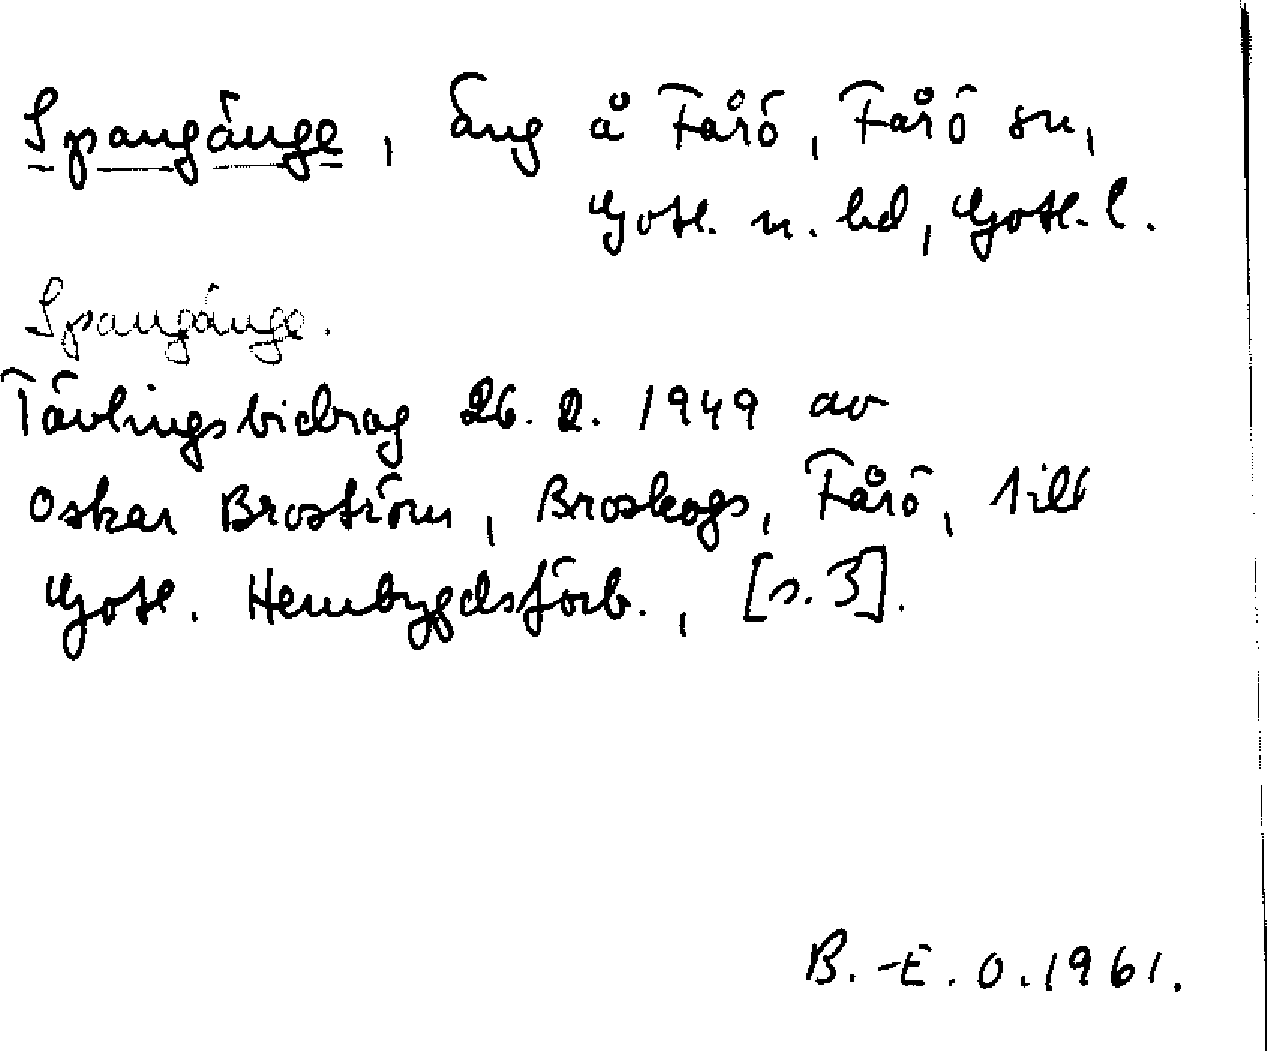 Spangänge, äng å Fårö, Fårö sn,
Gotl. n. hd, Gotl. l.
Spangänge.
Tävlingsbidrag 26. 2. 1949 av
Oskar Broström, Broskogs, Fårö, till
Gotl. Hembygdsförb., [s. 3].
B.-E. O. 1961.